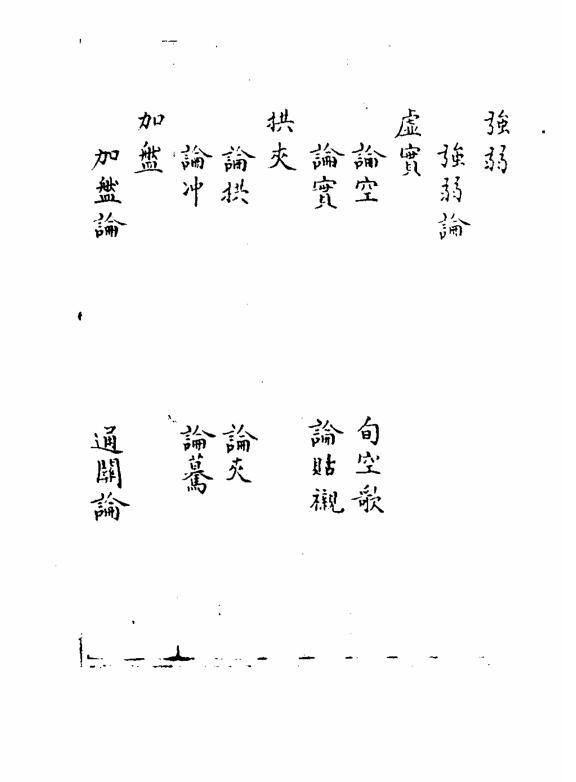 強弱
強弱論
虛實
論空　旬空歌
論實　論貼襯
拱夾
論拱　論夾
論冲　論驀
加盤
加盤論　通關論